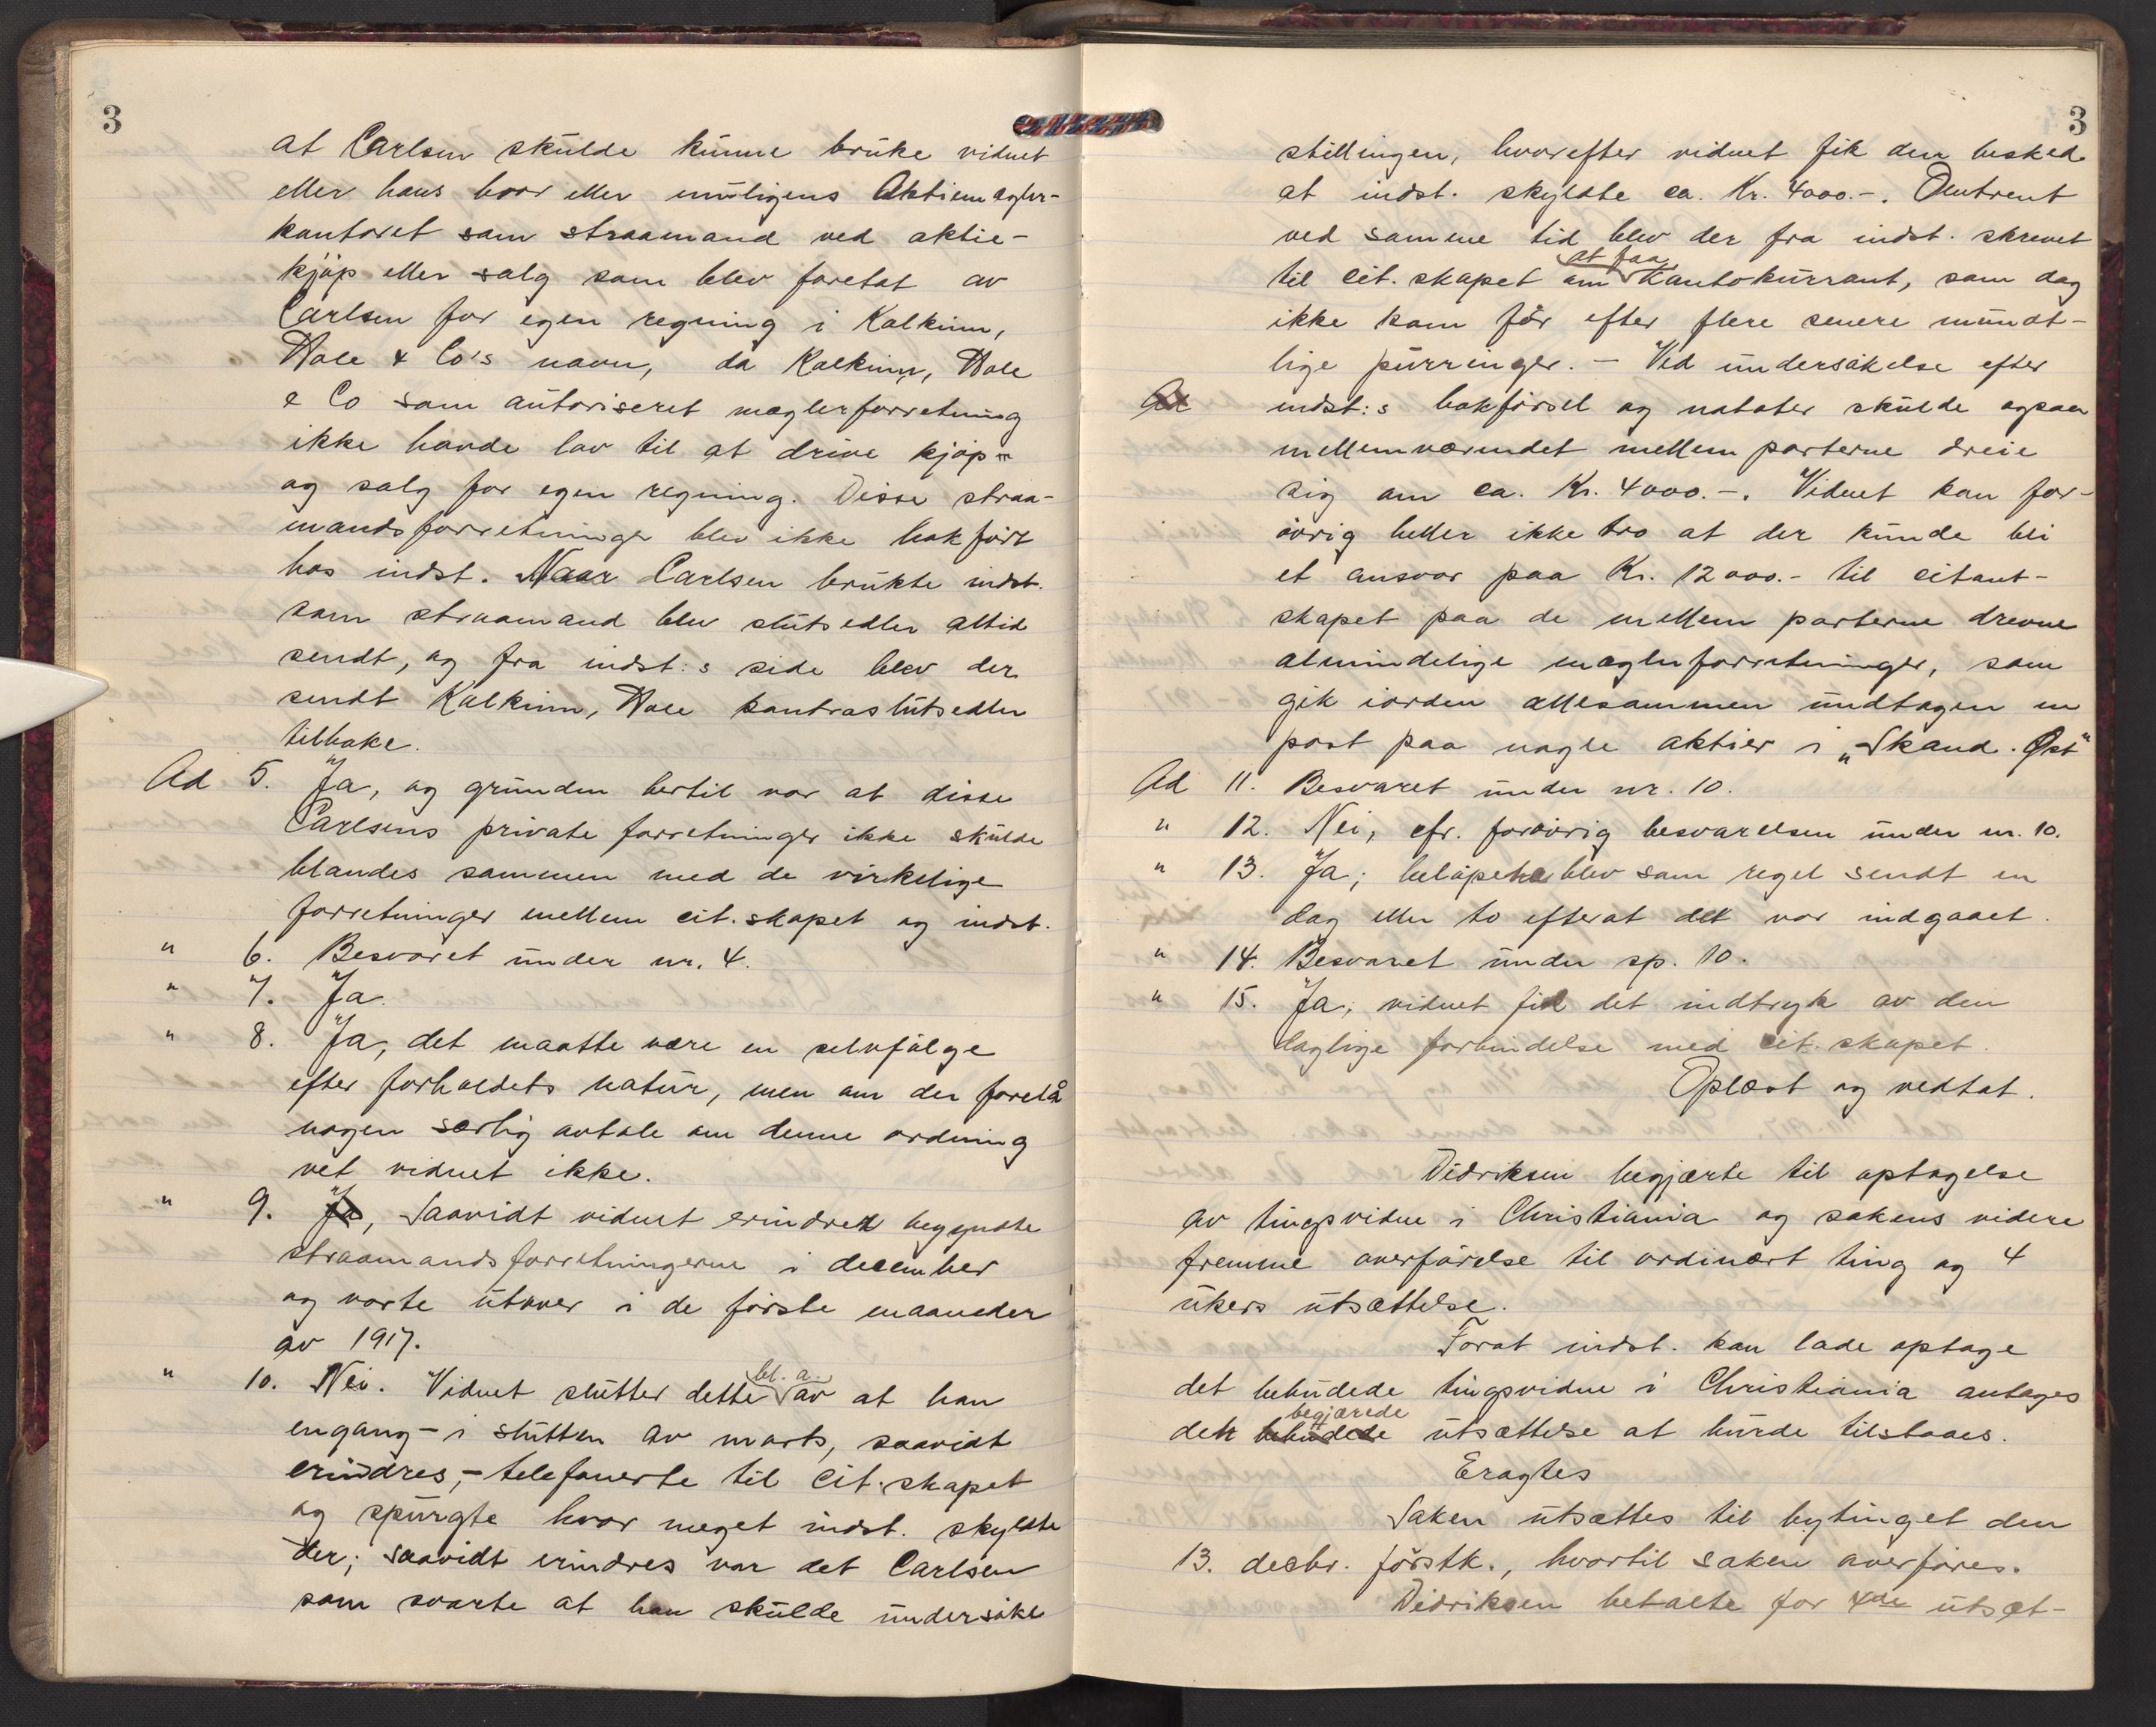 3
at Carlsen skulde kunne bruke vidnet
eller hans bror eller muligens Aktiemægler-
kontoret som straamand ved aktie-
kjøp eller salg som blev foretat av
Carlsen for egen regning i Kalkinn,
Hole & Co's navn, da Kalkinn, Hole
& Co som autoriseret mæglerforretning
ikke havde lov til at drive kjøp
og salg for egen regning. Disse straa-
mandsforretninger blev ikke bokført
hos indst. Naar Carlsen brukte indst.
som straamand blev slutsedler altid
sendt, og fra indst:s side blev der
sendt Kalkinn, Hole kontraslutsedler
tilbake.
Ad 5. Ja, og grunden hertil var at disse
Carlsens private forretninger ikke skulde
blandes sammen med de virkelige
forretninger mellem cit.skapet og indst.
" 6. Besvaret under nr. 4.
" 7. Ja.
" 8. Ja, det maatte være en selvfølge
efter forholdets natur, men om der forelå
nogen særlig avtale om denne ordning
vet vidnet ikke.
" 9. Ja, Saavidt vidnet erindrer begyndte
straamandsforretningerne i december
og varte utover i de første maaneder
av 1917.
" 10. Nei. Vidnet slutter dette bl. a. av at han
engang - i slutten av marts, saavidt
erindres, - telefonerte til cit.skapet
og spurgte hvor meget indst. skyldte
der; saavidt erindres var det Carlsen
som svarte at han skulde undersøke
3
stillingen, hvorefter vidnet fik den besked
at indst. skyldte ca. Kr. 4000.-. Omtrent
ved samme tid blev der fra indst. skrevet
til cit.skapet om at faa kontokurrant, som dog
ikke kom før efter flere senere mundt-
lige purringer. - Ved undersøkelse efter
Ad indst:s bokførsel og notater skulde ogsaa
mellemværendet mellem parterne dreie
sig om ca. Kr. 4000.-. Vidnet kan for-
øvrig heller ikke tro at der kunde bli
et ansvar paa Kr. 12000.- til citant-
skapet paa de mellem parterne drevne
almindelige mæglerforretninger, som
gik iorden allesammen undtagen en
post paa nogle aktier i "Skand. Øst"
Ad 11. Besvaret under nr. 10.
" 12. Nei, cfr. forøvrig besvarelsen under nr. 10.
" 13. Ja; beløpene blev som regel sendt en
dag eller to efterat det var indgaaet.
" 14. Besvaret under sp. 10.
" 15. Ja, vidnet fik det indtryk av den
daglige forbindelse med cit.skapet.
Oplæst og vedtat.
Didriksen begjærte til optagelse
av tingsvidne i Christiania og sakens videre
fremme overførelse til ordinært ting og 4
ukers utsættelse.
Forat indst. kan lade optage
det bebudede tingsvidne i Christiania antages
den bebudede begjærede utsættelse at burde tilstaaes.
Eragtes
Saken utsættes til bytinget den
13. decbr. førstk., hvortil saken overføres.
Didriksen betalte for 4de utsæt-